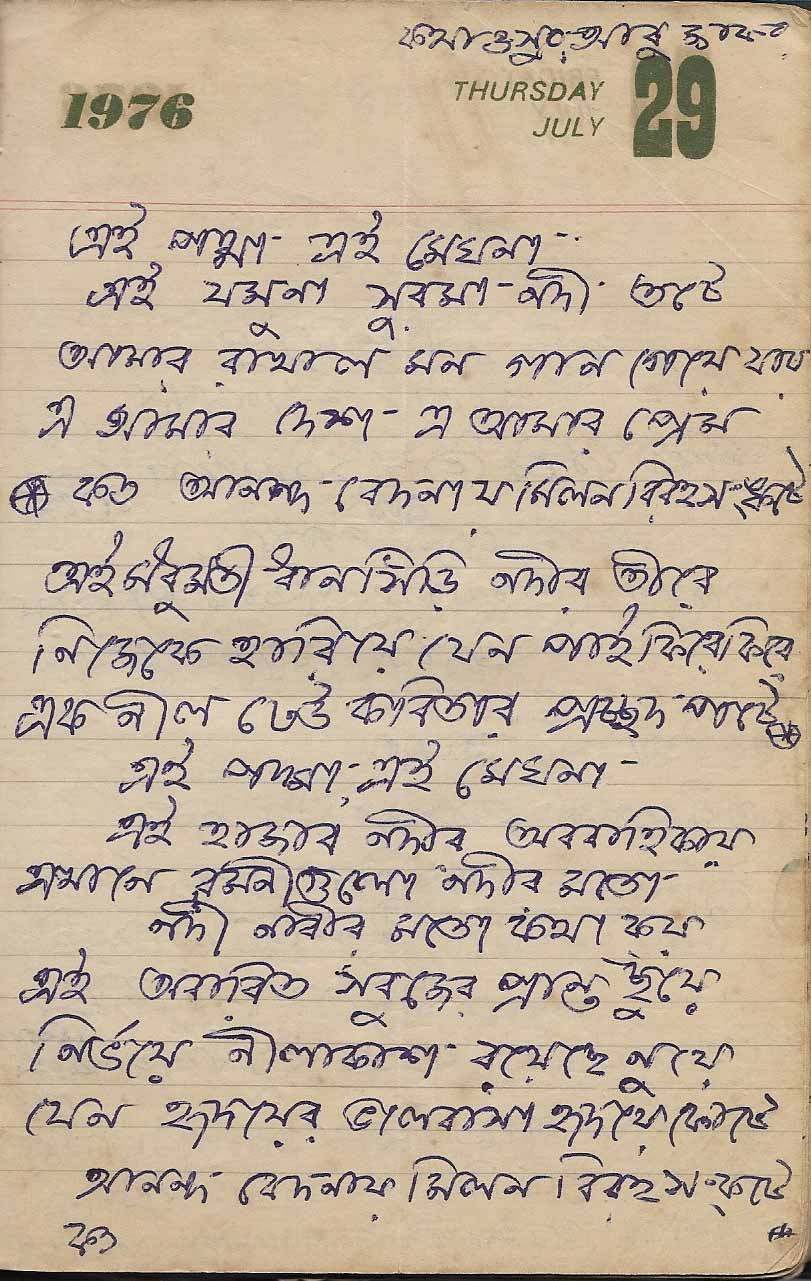 কথা ও সুরঃ আবু জাফর
1976
THURSDAY
JULY
29
এই পদ্মা এই মেঘনা
এই যমুনা সুরমা নদী তটে
আমার রাখাল মন গান গেয়ে যায়
এ আমার দেশ এ আমার প্রেম
কত আনন্দ বেদনায় মিলন বিরহ সংকটে
এই মধুমতী ধানসিঁড়ি নদীর তীরে
নিজেকে হারিয়ে যেন পাই ফিরে ফিরে
এক নীল ঢেউ কবিতার প্রচ্ছদ পটে
এই পদ্মা, এই মেঘনা
এই হাজার নদীর অববাহিকায়
এখানে রমনীগুলো নদীর মতো
নদী নারীর মতো কথা কয়
এই অবারিত সবুজের প্রান্ত ছুঁয়ে
নির্ভয়ে নীলাকাশ রয়েছে নুয়ে
যেন হৃদয়ের ভালবাসা হৃদয়ে ফোটে
আনন্দ বেদনায় মিলন বিরহ সংকটে
কত